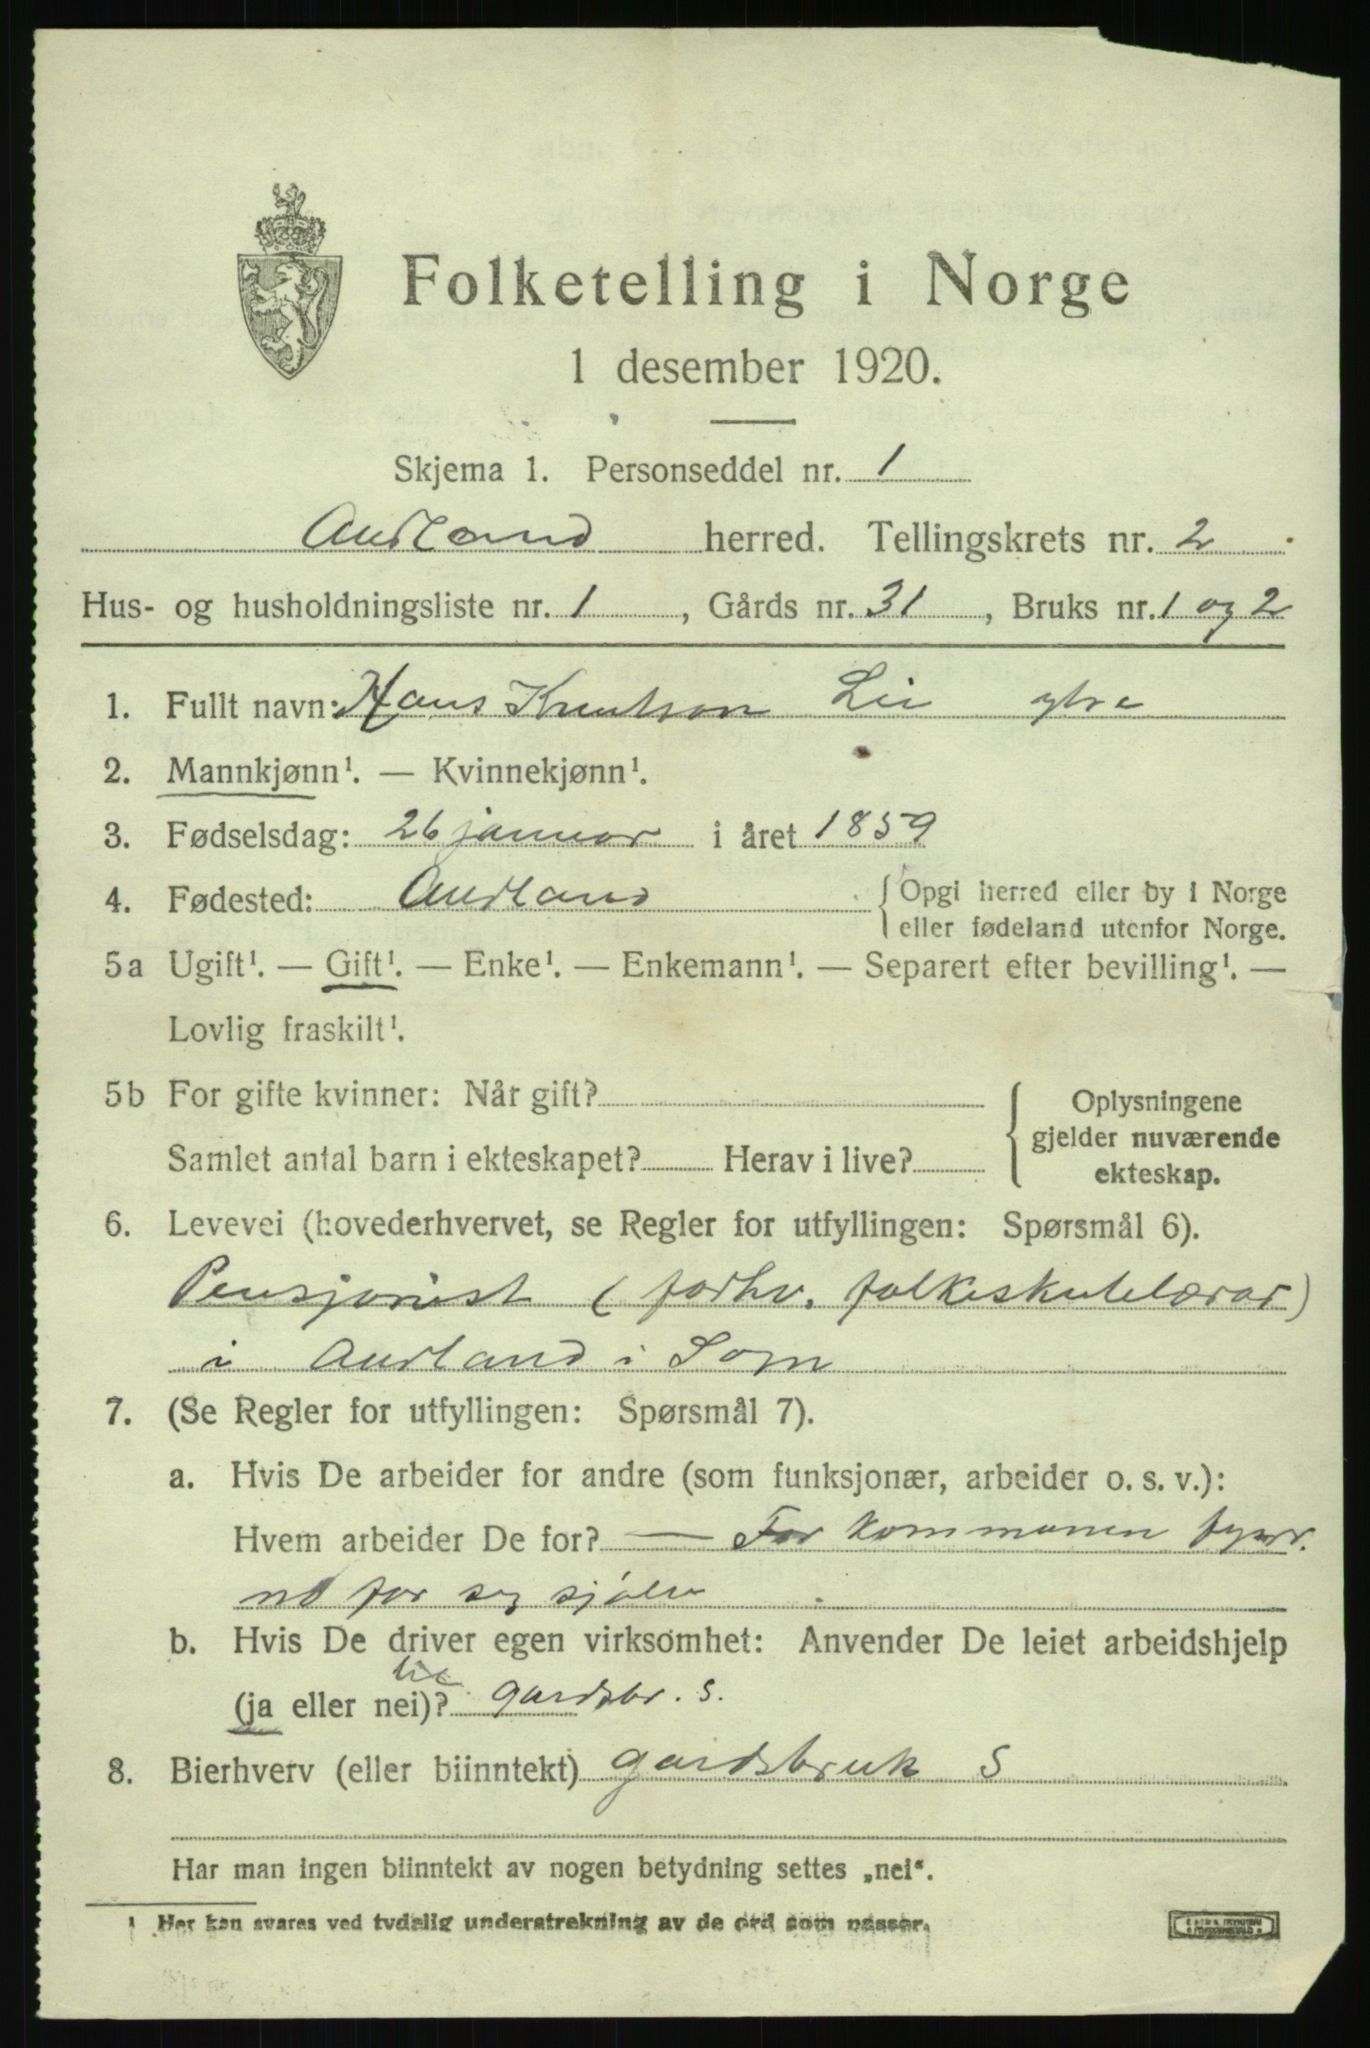 Folketelling i Norge
1 desember 1920.
Skjema 1. Personseddel nr. 1
Aurland herred. Tellingskrets nr. 2
Hus- og husholdningsliste nr. 1, Gårds nr. 31, Bruks nr. 1 og 2
1. Fullt navn: Hans Knutson Lii ytre
2. Mannkjønn¹. — Kvinnekjønn¹.
3. Fødselsdag: 26 januar i året 1859
4. Fødested: Aurland { Opgi herred eller by i Norge
eller fødeland utenfor Norge.
5a Ugift¹. — Gift¹. — Enke¹. — Enkemann¹. — Separert efter bevilling¹. —
Lovlig fraskilt¹.
5b For gifte kvinner: Når gift?
Samlet antal barn i ekteskapet? Herav i live?
Oplysningene
gjelder nuværende
ekteskap.
6. Levevei (hovederhvervet, se Regler for utfyllingen: Spørsmål 6).
Pensjonist (forhv. folkeskulelærar)
i Aurland i Sogn
7. (Se Regler for utfyllingen: Spørsmål 7).
a. Hvis De arbeider for andre (som funksjonær, arbeider o. s. v.):
Hvem arbeider De for? — For kommunen fyrr.
no for seg sjølv
b. Hvis De driver egen virksomhet: Anvender De leiet arbeidshjelp
til
(ja eller nei)? gardsbr. S.
8. Bierhverv (eller biinntekt) gardsbruk S
Har man ingen biinntekt av nogen betydning settes „nei“.
¹ Her kan svares ved tydelig understrekning av de ord som passer.